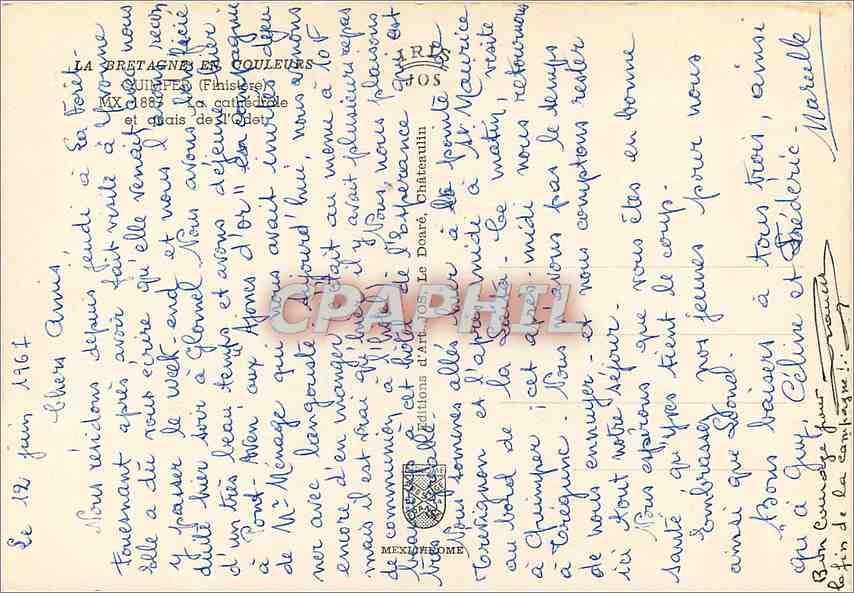 LA BRETAGNE EN COULEURS
QUIMPER (Finistère)
MX 1887 - La cathédrale
et quais de l'Odet
IRIS
JOS
Editions d'Art JOS Le Doaré, Châteaulin
MEXICHROME
CPAPHIL
Le 12 juin 1967
Chers Amis,
Nous résidons depuis jeudi à La Forêt-
Fouesnant après avoir fait visite à Yvonne
Elle a dû vous écrire qu'elle venait avec nous
y passer le week-end et nous l'avons recon
duite hier soir à Glomel. Nous avons bénéficié
d'un très beau temps et avons déjeuné hier
à Pont-Aven aux Ajoncs d'or" en compagnie
de Mr Menage qui nous avait invités à déjeu
ner avec langouste. Aujourd'hui, nous venons
encore d'en manger, c'était au menu à 10F
mais il est vrai qu'il y avait plusieurs repas
de communion à l'hôtel de l'Espérance qui est
très
Nous sommes allés hier à la pointe de
Trévignon et l'après midi à St Maurice
au bord de la Laïta. Ce matin, visite
à Quimper ; cet après-midi nous retournons
à Trégunc. Nous n'avons pas le temps
de nous ennuyer et nous comptons rester
ici tout notre séjour.
Nous espérons que vous êtes en bonne
santé, qu'Yves tient le coup.
Embrassez vos jeunes pour nous
ainsi que
Bons baisers à tous trois, ainsi
qu'à Guy, Céline et Frédéric.
Marcelle
Bon courage pour
la fin de la campagne !
Francis